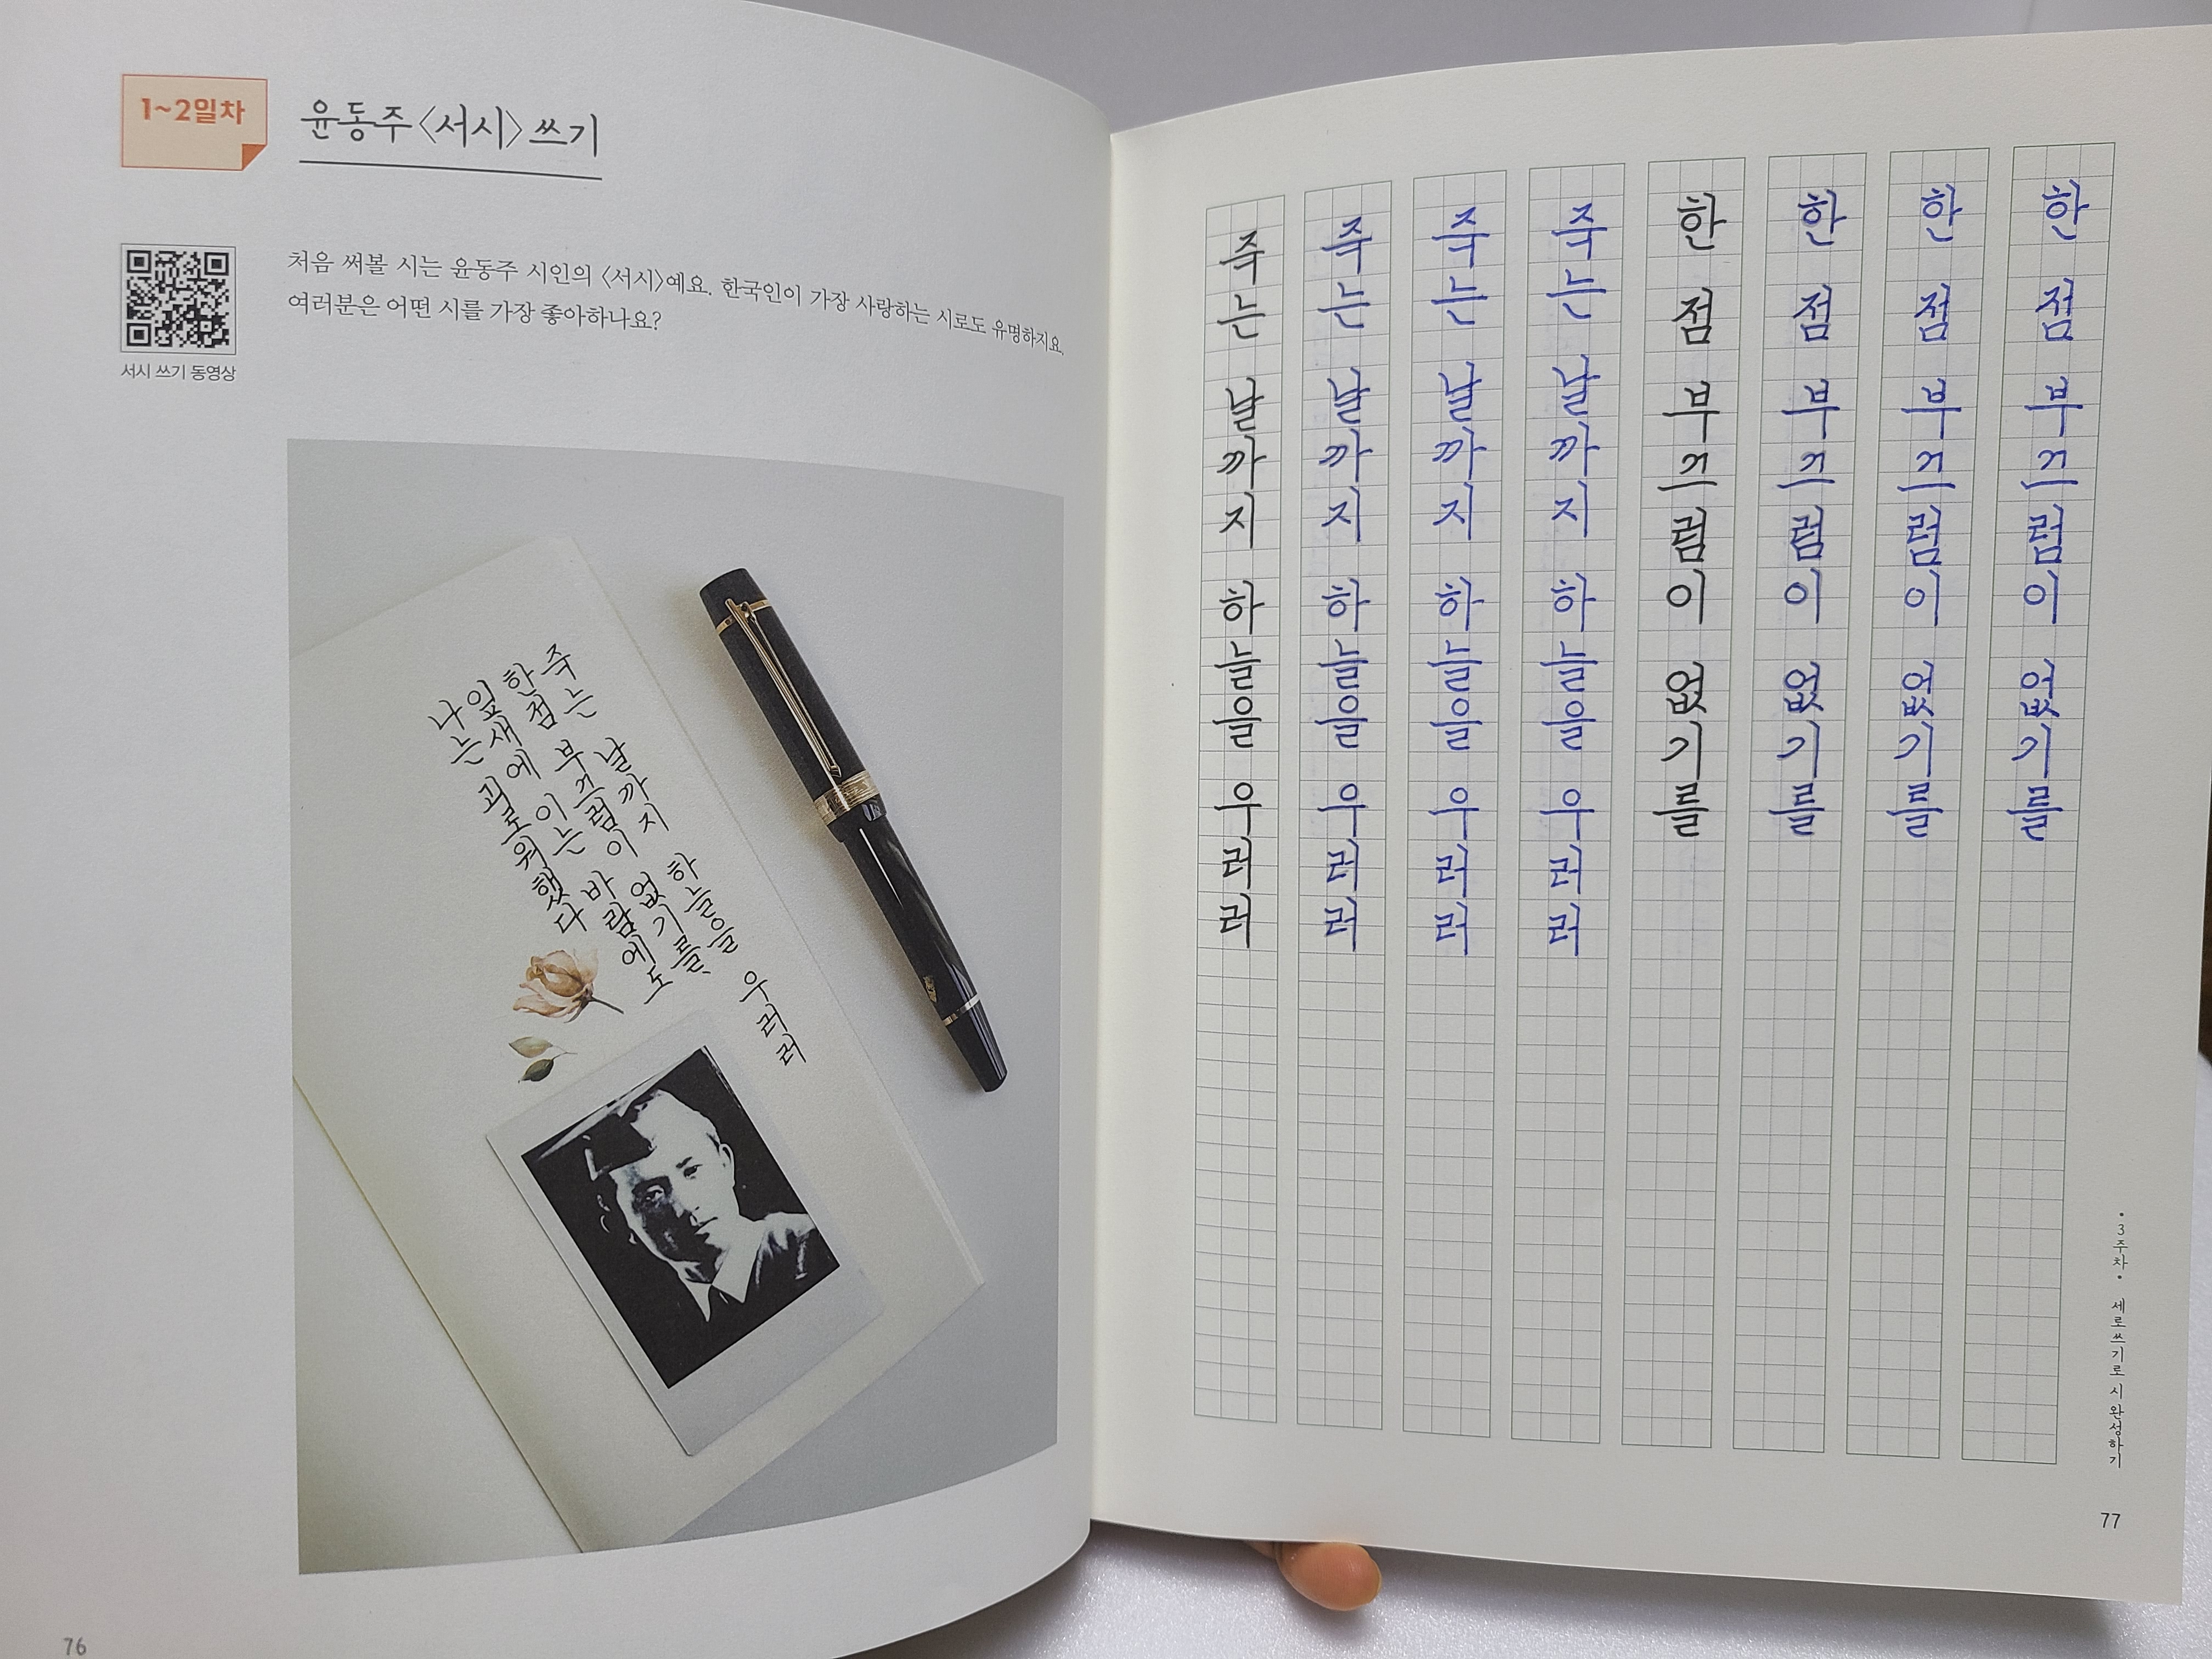 1~2일차
윤동주 〈서시〉 쓰기
처음 써볼 시는 윤동주 시인의 〈서시〉예요. 한국인이 가장 사랑하는 시로도 유명하지요.
여러분은 어떤 시를 가장 좋아하나요?
서시 쓰기 동영상
죽는 날까지 하늘을 우러러
한 점 부끄럼이 없기를,
잎새에 이는 바람에도
나는 괴로워했다
76
주는 날까지 하늘을 우러러
주는 날까지 하늘을 우러러
주는 날까지 하늘을 우러러
주는 날까지 하늘을 우러러
한 점 부끄럼이 없기를
한 점 부끄럼이 없기를
한 점 부끄럼이 없기를
한 점 부끄럼이 없기를
• 3주차 • 세로쓰기로 시 완성하기
77